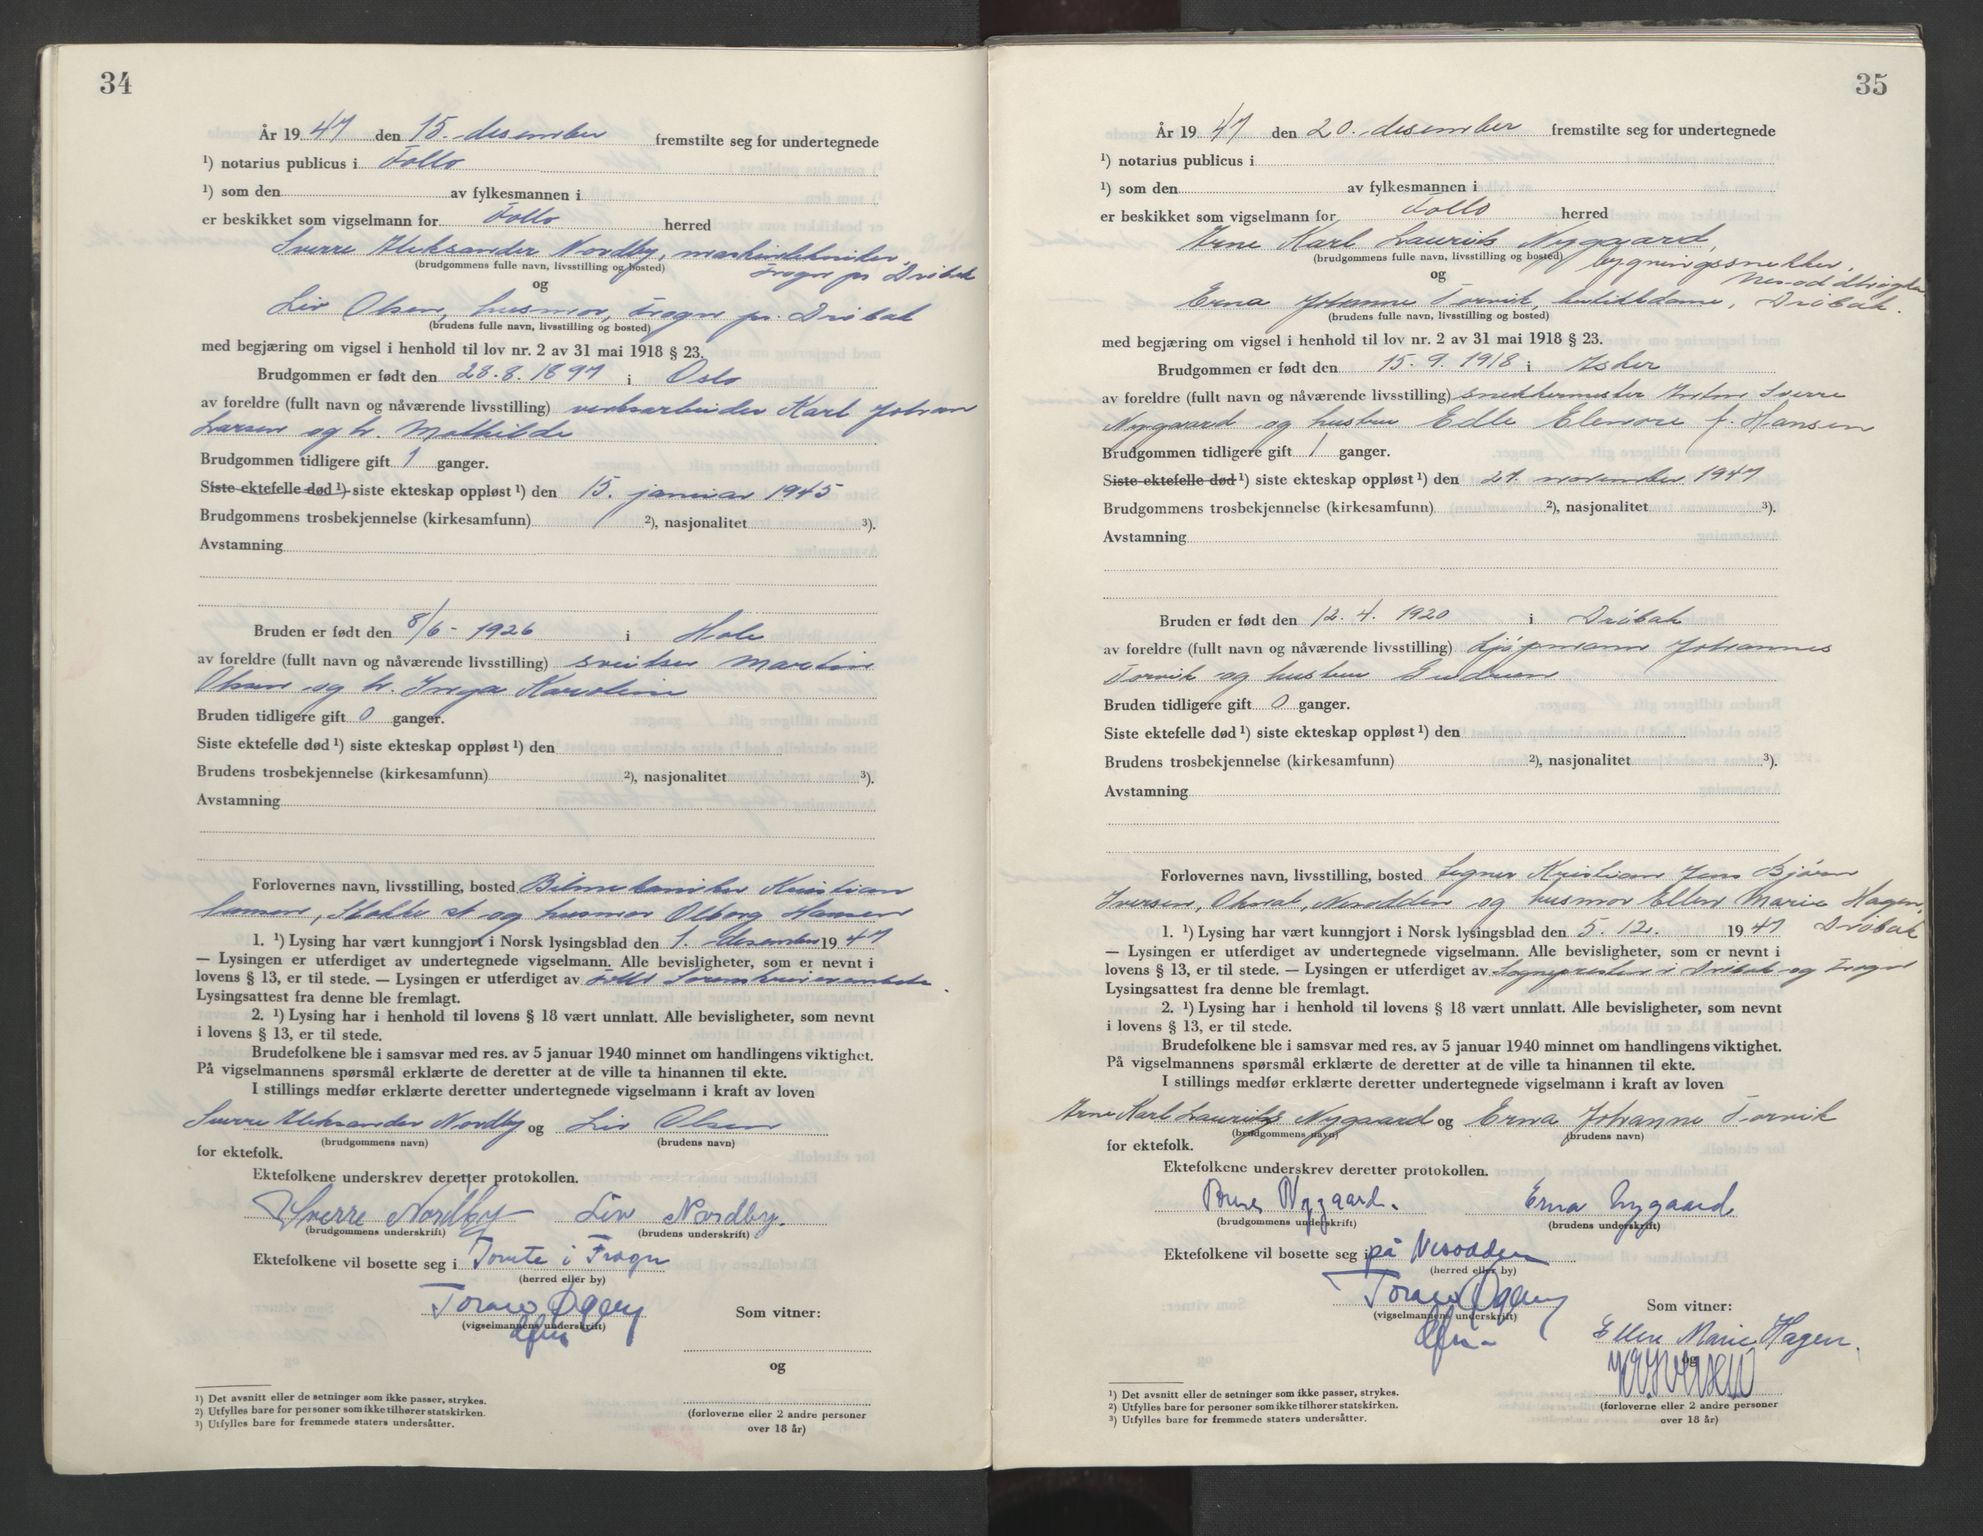 34
År 1947 den 15. desember fremstilte seg for undertegnede
¹) notarius publicus i Follo
¹) som den av fylkesmannen i
er beskikket som vigselmann for Follo herred
Sverre Aleksander Nordby, maskintekniker,
(brudgommens fulle navn, livsstilling og bosted) Frogn pr Drøbak
og
Liv Olsen, husmor, Frogn pr. Drøbak
(brudens fulle navn, livsstilling og bosted)
med begjæring om vigsel i henhold til lov nr. 2 av 31 mai 1918 § 23.
Brudgommen er født den 28.8.1897 i Oslo
av foreldre (fullt navn og nåværende livsstilling) verksarbeider Karl Johan
Larsen og h. Mathilde
Brudgommen tidligere gift 1 ganger.
Siste ektefelle død ¹) siste ekteskap oppløst ¹) den 15. januar 1945
Brudgommens trosbekjennelse (kirkesamfunn) ²), nasjonalitet ³).
Avstamning
Bruden er født den 8/6 - 1926 i Hole
av foreldre (fullt navn og nåværende livsstilling) sveitser Martin
Olsen og h. Inga Karoline
Bruden tidligere gift 0 ganger.
Siste ektefelle død ¹) siste ekteskap oppløst ¹) den
Brudens trosbekjennelse (kirkesamfunn) ²), nasjonalitet ³).
Avstamning
Forlovernes navn, livsstilling, bosted Kristian
og husmor Olborg Hansen
1. ¹) Lysing har vært kunngjort i Norsk lysingsblad den 1. desember 1947
— Lysingen er utferdiget av undertegnede vigselmann. Alle bevisligheter, som er nevnt i
lovens § 13, er til stede. — Lysingen er utferdiget av Follo Sorenskriverembede.
Lysingsattest fra denne ble fremlagt.
2. ¹) Lysing har i henhold til lovens § 18 vært unnlatt. Alle bevisligheter, som nevnt
i lovens § 13, er til stede.
Brudefolkene ble i samsvar med res. av 5 januar 1940 minnet om handlingens viktighet.
På vigselmannens spørsmål erklærte de deretter at de ville ta hinannen til ekte.
I stillings medfør erklærte deretter undertegnede vigselmann i kraft av loven
Sverre Aleksander Nordby og Liv Olsen
(brudgommens navn) (brudens navn)
for ektefolk.
Ektefolkene underskrev deretter protokollen.
Sverre Nordby Liv Nordby.
(brudgommens underskrift) (brudens underskrift)
Ektefolkene vil bosette seg i Tomte i Frogn
(herred eller by)
Som vitner:
(vigselmannens underskrift)
og
¹) Det avsnitt eller de setninger som ikke passer, strykes.
²) Utfylles bare for personer som ikke tilhører statskirken.
³) Utfylles bare for fremmede staters undersåtter.
(forloverne eller 2 andre personer
over 18 år)
35
År 1947 den 20. desember fremstilte seg for undertegnede
¹) notarius publicus i
¹) som den av fylkesmannen i
er beskikket som vigselmann for Follo herred
Arne Karl Laurits Nygaard,
(brudgommens fulle navn, livsstilling og bosted) bygningssnekker,
og Nesoddtangen
Erna Johanne Torvik, butikkdame, Drøbak.
(brudens fulle navn, livsstilling og bosted)
med begjæring om vigsel i henhold til lov nr. 2 av 31 mai 1918 § 23.
Brudgommen er født den 15.9.1918 i Asker
av foreldre (fullt navn og nåværende livsstilling) snekkermester Anton Sverre
Nygaard og hustru Edle Elenore f. Hansen
Brudgommen tidligere gift 1 ganger.
Siste ektefelle død ¹) siste ekteskap oppløst ¹) den 27. november 1947
Brudgommens trosbekjennelse (kirkesamfunn) ²), nasjonalitet ³).
Avstamning
Bruden er født den 12.4.1920 i Drøbak
av foreldre (fullt navn og nåværende livsstilling) Kjøpmann Johannes
Torvik og hustru Gudrun
Bruden tidligere gift 0 ganger.
Siste ektefelle død ¹) siste ekteskap oppløst ¹) den
Brudens trosbekjennelse (kirkesamfunn) ²), nasjonalitet ³).
Avstamning
Forlovernes navn, livsstilling, bosted Kristian Jens Bjørn
Iversen, Nesodden og husmor Ellen Marie Hagen,
1. ¹) Lysing har vært kunngjort i Norsk lysingsblad den 5.12. 1947 Drøbak
— Lysingen er utferdiget av undertegnede vigselmann. Alle bevisligheter, som er nevnt i
lovens § 13, er til stede. — Lysingen er utferdiget av Sognepresten i Drøbak og Frogn
Lysingsattest fra denne ble fremlagt.
2. ¹) Lysing har i henhold til lovens § 18 vært unnlatt. Alle bevisligheter, som nevnt
i lovens § 13, er til stede.
Brudefolkene ble i samsvar med res. av 5 januar 1940 minnet om handlingens viktighet.
På vigselmannens spørsmål erklærte de deretter at de ville ta hinannen til ekte.
I stillings medfør erklærte deretter undertegnede vigselmann i kraft av loven
Arne Karl Laurits Nygaard og Erna Johanne Torvik
(brudgommens navn) (brudens navn)
for ektefolk.
Ektefolkene underskrev deretter protokollen.
Arne Nygaard. Erna Nygaard
(brudgommens underskrift) (brudens underskrift)
Ektefolkene vil bosette seg i på Nesodden
(herred eller by)
Som vitner:
(vigselmannens underskrift)
Ellen Marie Hagen.
og
¹) Det avsnitt eller de setninger som ikke passer, strykes.
²) Utfylles bare for personer som ikke tilhører statskirken.
³) Utfylles bare for fremmede staters undersåtter.
(forloverne eller 2 andre personer
over 18 år)